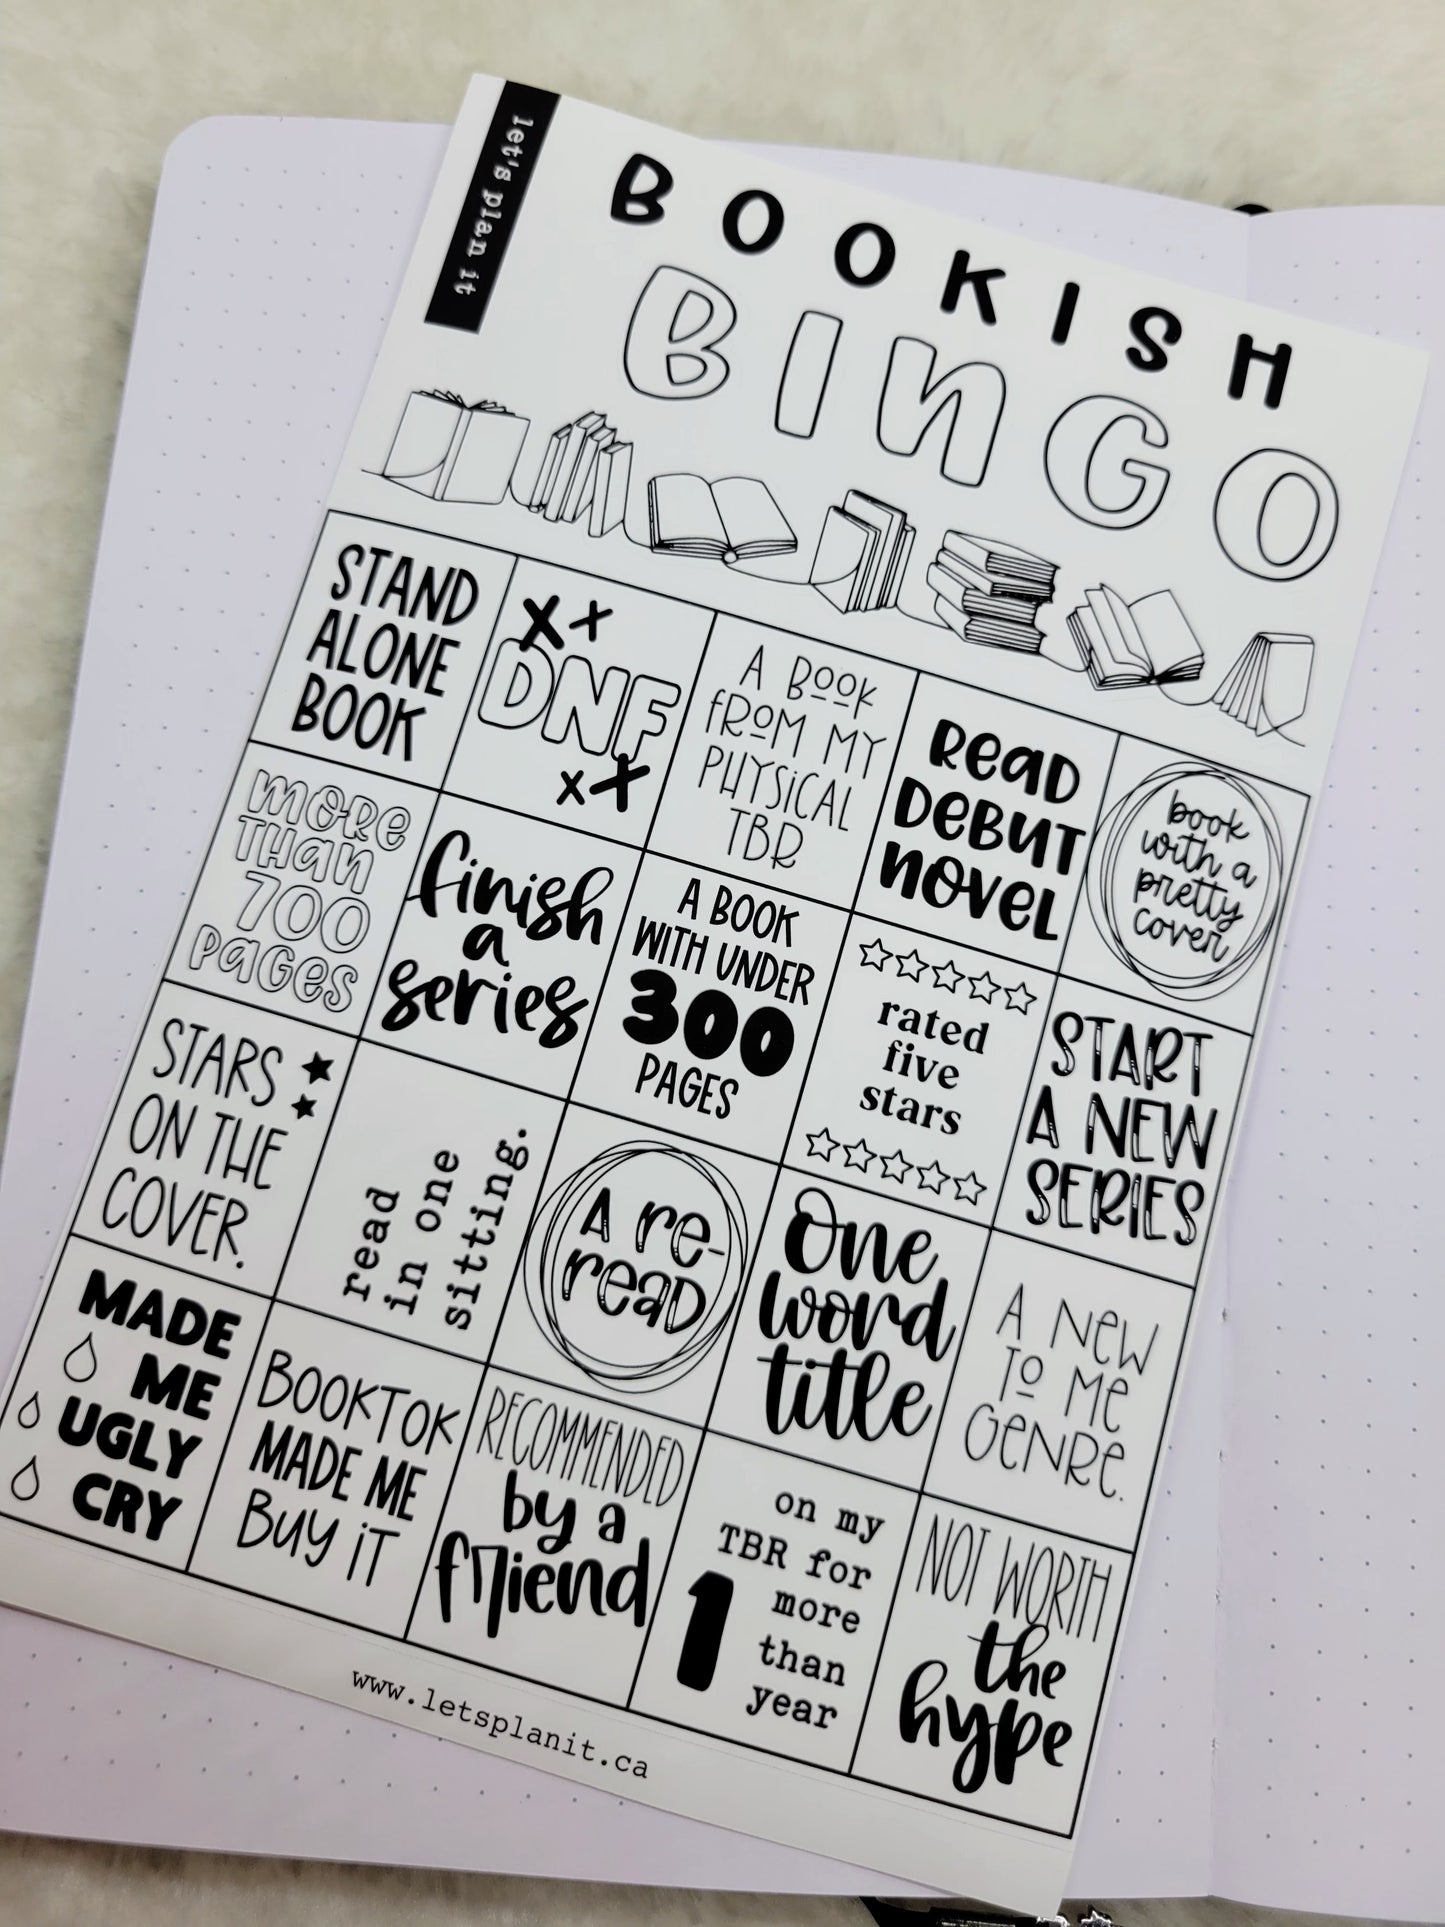 let's plan it
BOOKISH
BINGO
STAND
ALONE
BOOK
DNF
A BOOK
FROM MY
PHYSICAL
TBR
READ
DEBUT
NOVEL
book
with a
pretty
cover
MORE
THAN
700
PAGES
finish
a
series
A BOOK
WITH UNDER
300
PAGES
rated
five
stars
START
A NEW
SERIES
STARS
ON THE
COVER.
read
in one
sitting.
A re-
read
One
word
title
A NEW
TO ME
GENRE.
MADE
ME
UGLY
CRY
BOOKTOK
MADE ME
BUY IT
RECOMMENDED
by a
friend
on my
TBR for
more
than
1
year
NOT WORTH
the
hype
www.letsplanit.ca